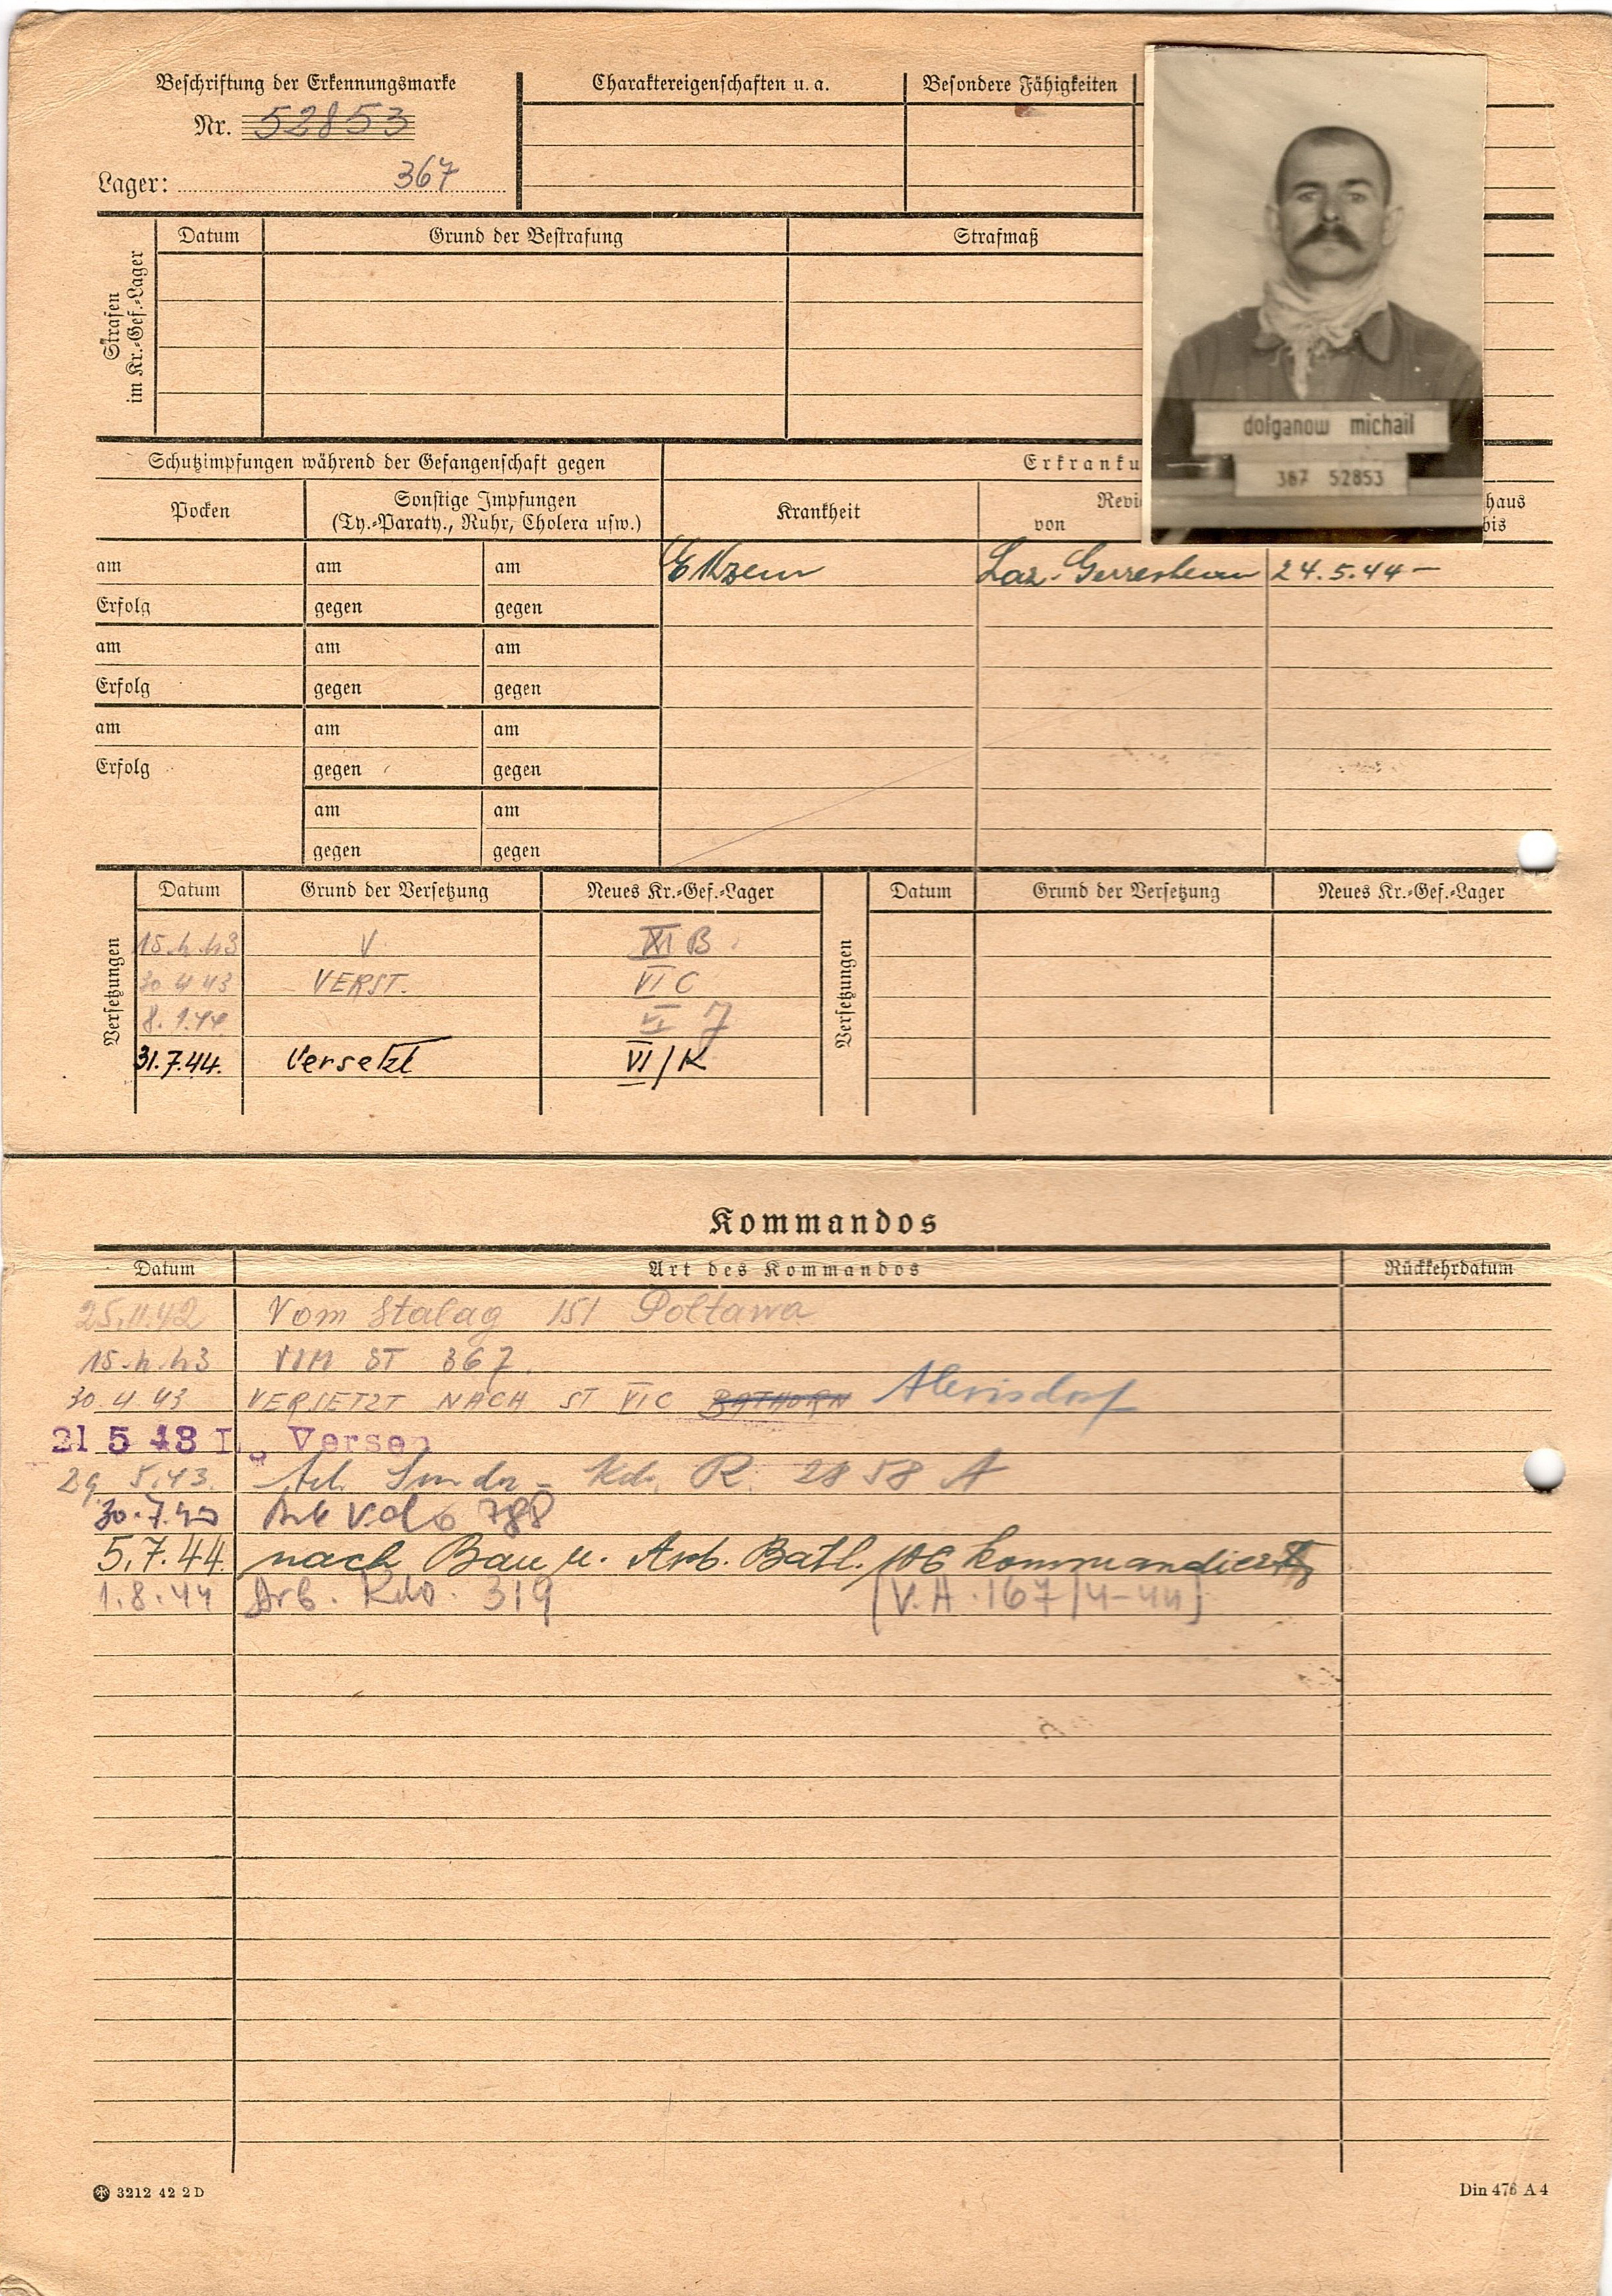 Beschriftung der Erkennungsmarke
Nr. 52853
Lager: 367
Charaktereigenschaften u. a.
Besondere Fähigkeiten
dolganow michail
367 52853
Strafen im Kr.-Gef.-Lager
Datum Grund der Bestrafung Strafmaß
Schutzimpfungen während der Gefangenschaft gegen Erkranku
Pocken Sonstige Impfungen Krankheit Revi haus
(Ty.-Paraty., Ruhr, Cholera usw.) von bis
am am am Ekzem Laz. Gerresheim 24.5.44 –
Erfolg gegen gegen
am am am
Erfolg gegen gegen
am am am
Erfolg gegen gegen
am am
gegen gegen
Versetzungen Datum Grund der Versetzung Neues Kr.-Gef.-Lager Versetzungen Datum Grund der Versetzung Neues Kr.-Gef.-Lager
15.4.43 V XI B
30 4 43 VERST. VI C
8.1.44 VI J
31.7.44. Versetzt VI/K
Kommandos
Datum Art des Kommandos Rückkehrdatum
25.11.42 Vom Stalag 151 Poltawa
15.4.43 VOM ST 367.
30.4.43 VERSETZT NACH ST VI C BATHORN Alexisdorf
21 5 43 Versen
29. 5.43. Kdo. R. 2858 A
30.7.43 788
5.7.44. nach Bau u. Arb. Batl. 106 kommandiert
1.8.44 Arb. Kdo. 319 [V.A. 167/4-44]
3212 42 2 D
Din 476 A 4